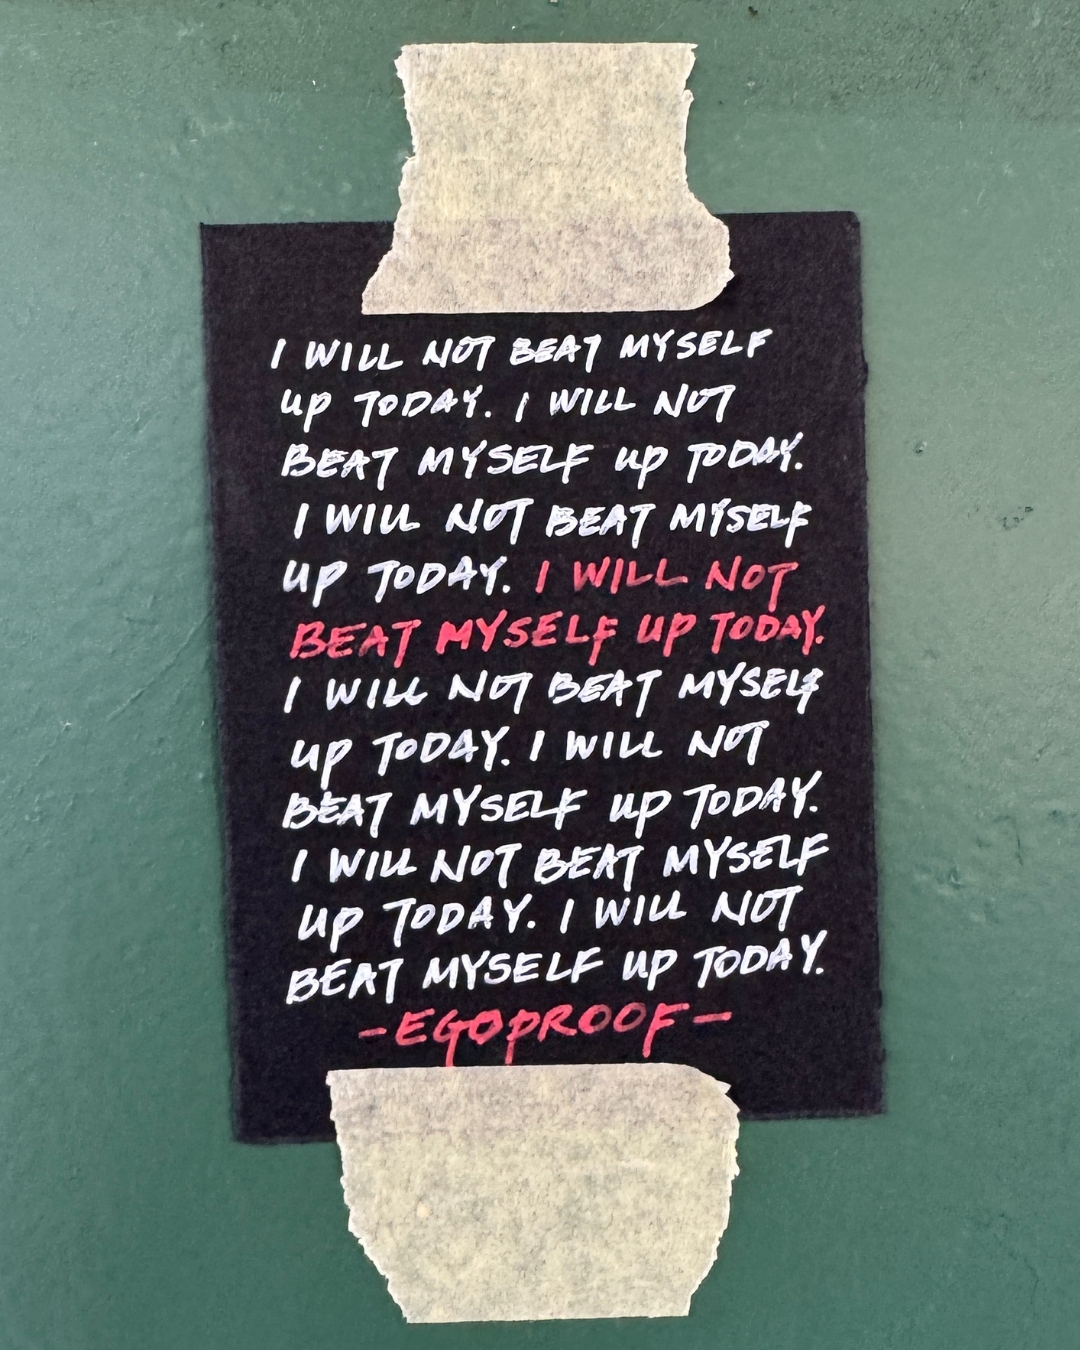 I WILL NOT BEAT MYSELF
UP TODAY. I WILL NOT
BEAT MYSELF UP TODAY.
I WILL NOT BEAT MYSELF
UP TODAY. I WILL NOT
BEAT MYSELF UP TODAY.
I WILL NOT BEAT MYSELF
UP TODAY. I WILL NOT
BEAT MYSELF UP TODAY.
I WILL NOT BEAT MYSELF
UP TODAY. I WILL NOT
BEAT MYSELF UP TODAY.
-EGOPROOF-